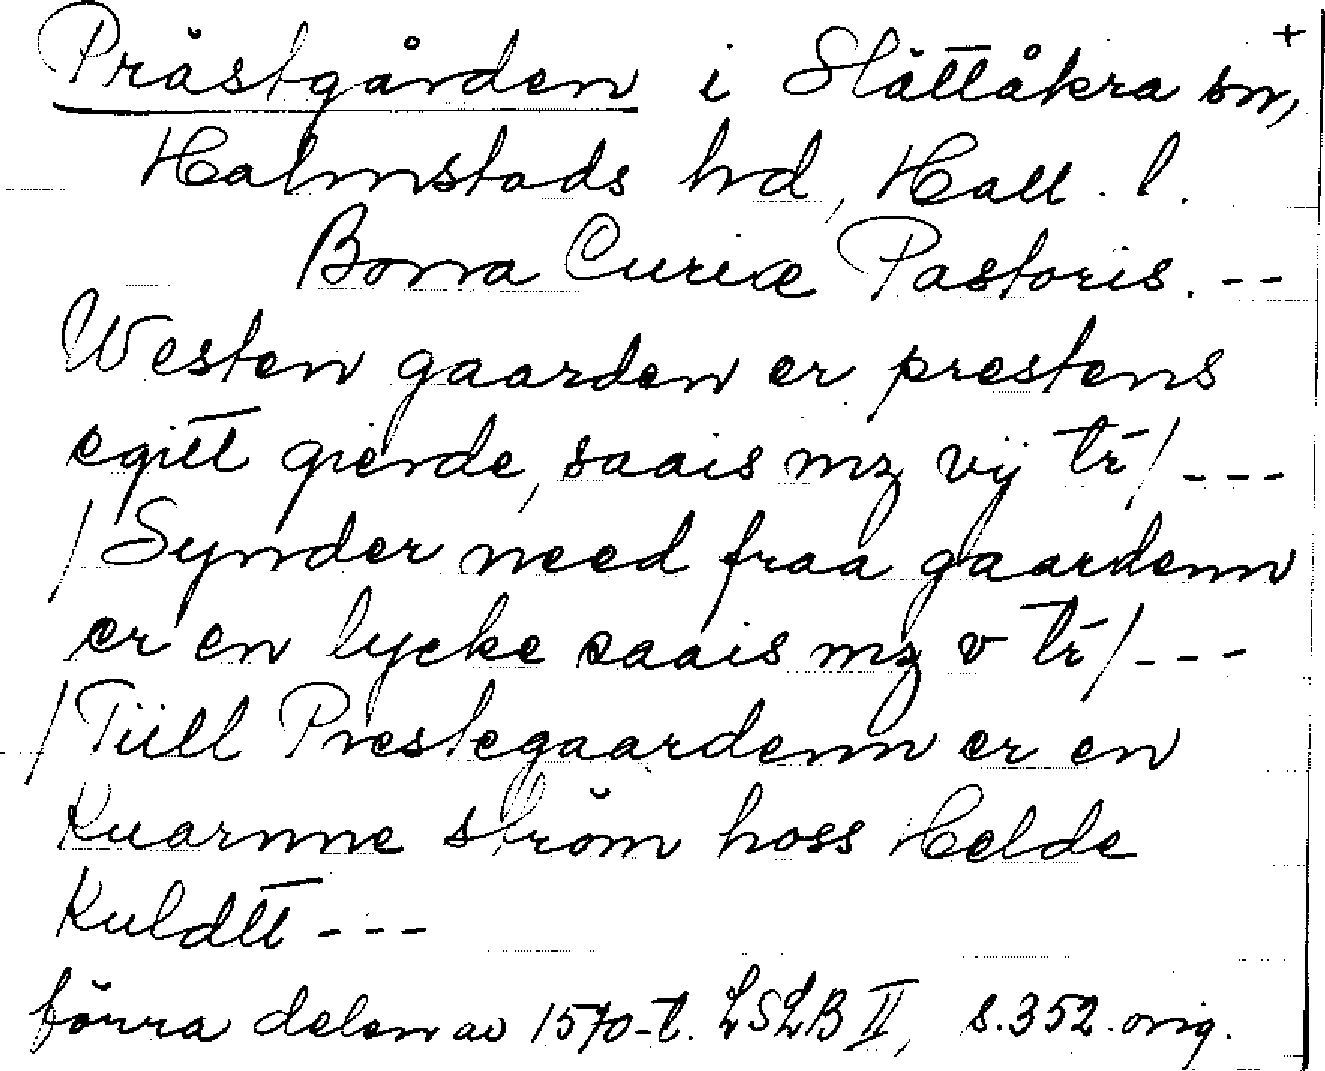 Prästgården i Slättåkra sn, +
Halmstads hd, Hall. l.
Bona Curiæ Pastoris. --
Westen gaarden er prestens
egitt gierde, saais mz vij tr/---
/Synder need fraa gaardenn
er en lycke saais mz v tr/---
/Tiill Prestegaardenn er en
Kuarnne ström hoss Helde
Kuldtt---
förra delen av 1570-t. LSLB II, s. 352. orig.